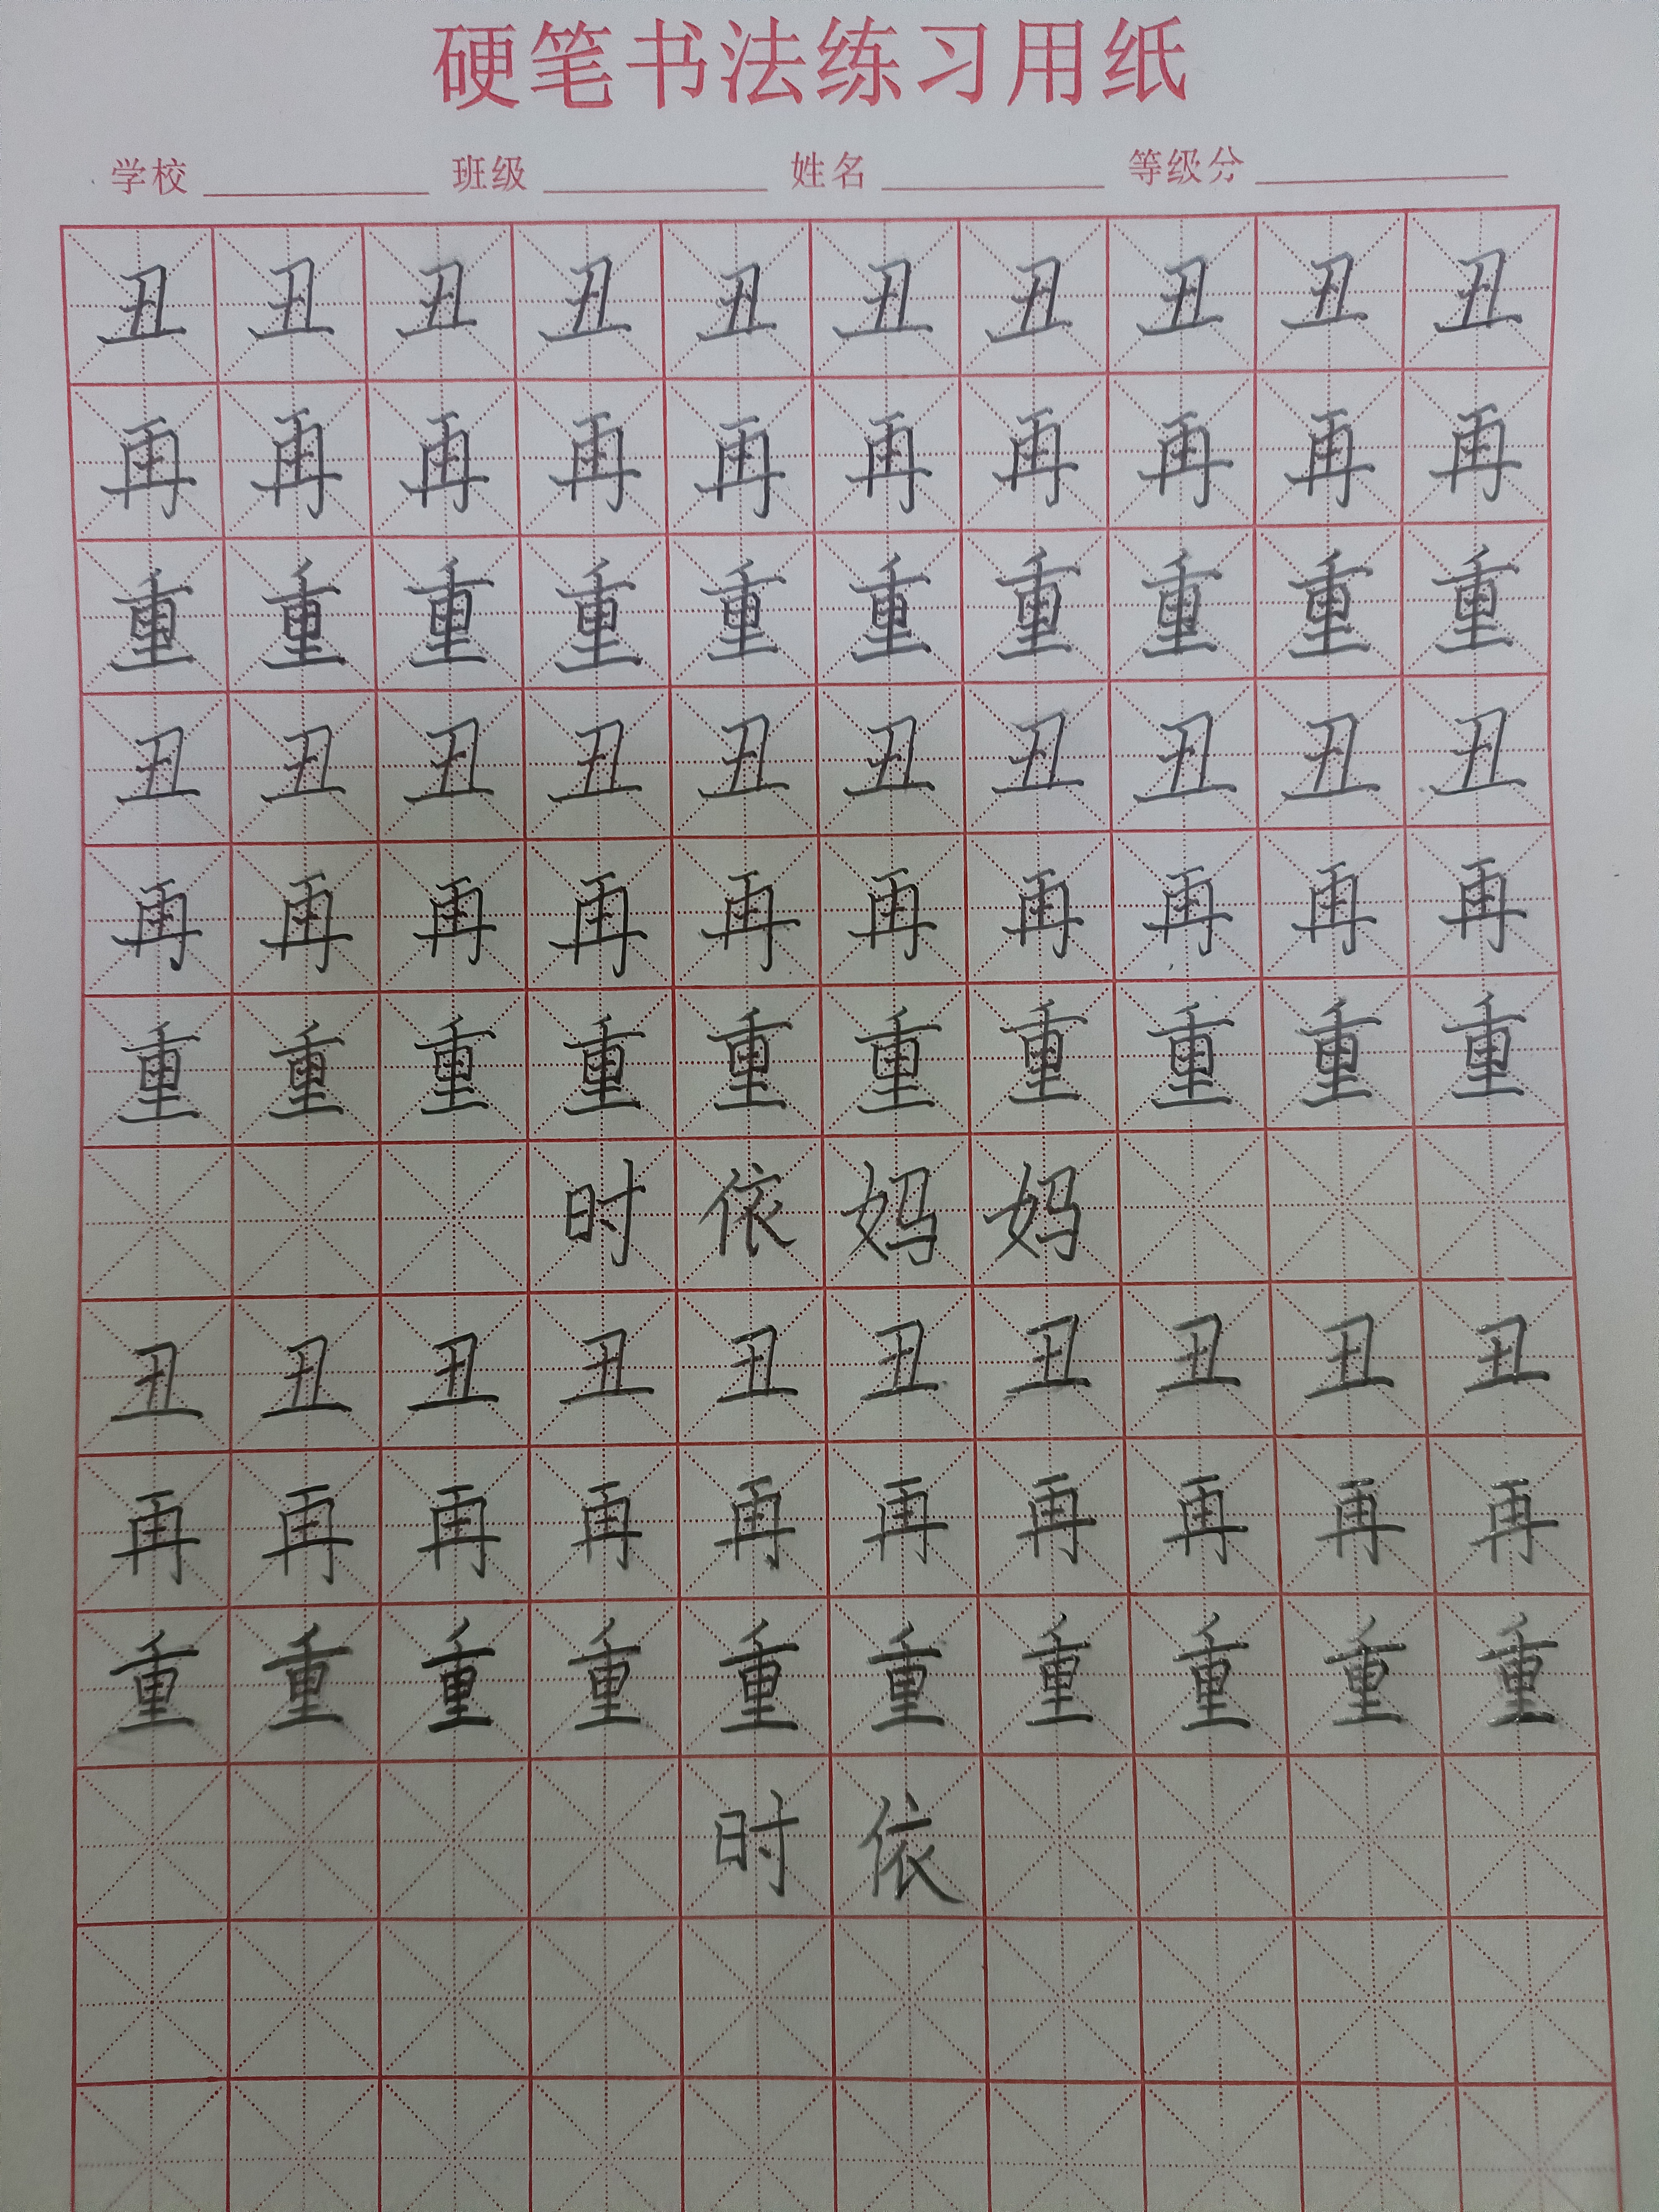 硬笔书法练习用纸
学校 班级 姓名 等级分
丑丑丑丑丑丑丑丑丑丑
再再再再再再再再再再
重重重重重重重重重重
丑丑丑丑丑丑丑丑丑丑
再再再再再再再再再再
重重重重重重重重重重
时依妈妈
丑丑丑丑丑丑丑丑丑丑
再再再再再再再再再再
重重重重重重重重重重
时依